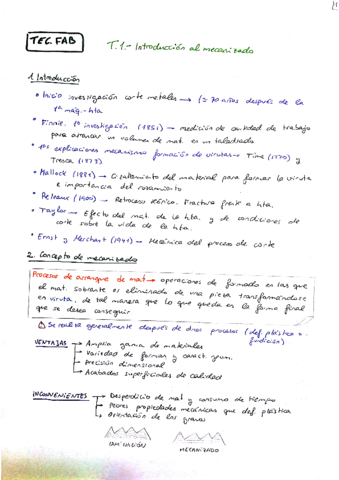 TEC. FAB
T.1.- Introducción al mecanizado
1. Introducción
• Inicio investigación corte metales → (≃ 70 años después de la
1ª máq.-hta
• Finnie. 1ª investigación (1851) → medición de cantidad de trabajo
para arrancar un volumen de mat. en un taladrado
• 1as explicaciones mecanismo formación de virutas → Time (1870) y
Tresca (1873)
• Mallock (1881) → Cizallamiento del material para formar la viruta
e importancia del rozamiento
• (1900) → Retroceso teórico. Fractura frente a hta.
• Taylor → Efecto del mat. de la hta. y de condiciones de
corte sobre la vida de la hta.
• Ernst y Merchant (1941) → Mecánica del proceso de corte
2. Concepto de mecanizado
Procesos de arranque de mat → operaciones de formado en las que
el mat. sobrante es eliminado de una pieza transformándose
en viruta, de tal manera que lo que queda es la forma final
que se desea conseguir
⚠ Se realiza generalmente después de otros procesos (def. plástica o
fundición)
VENTAJAS → Amplia gama de materiales
→ Variedad de formas y caract. geom.
→ Precisión dimensional
→ Acabados superficiales de calidad
INCONVENIENTES → Desperdicio de mat y consumo de tiempo
→ Peores propiedades mecánicas que def. plástica
→ Orientación de los granos
LAMINACIÓN
MECANIZADO